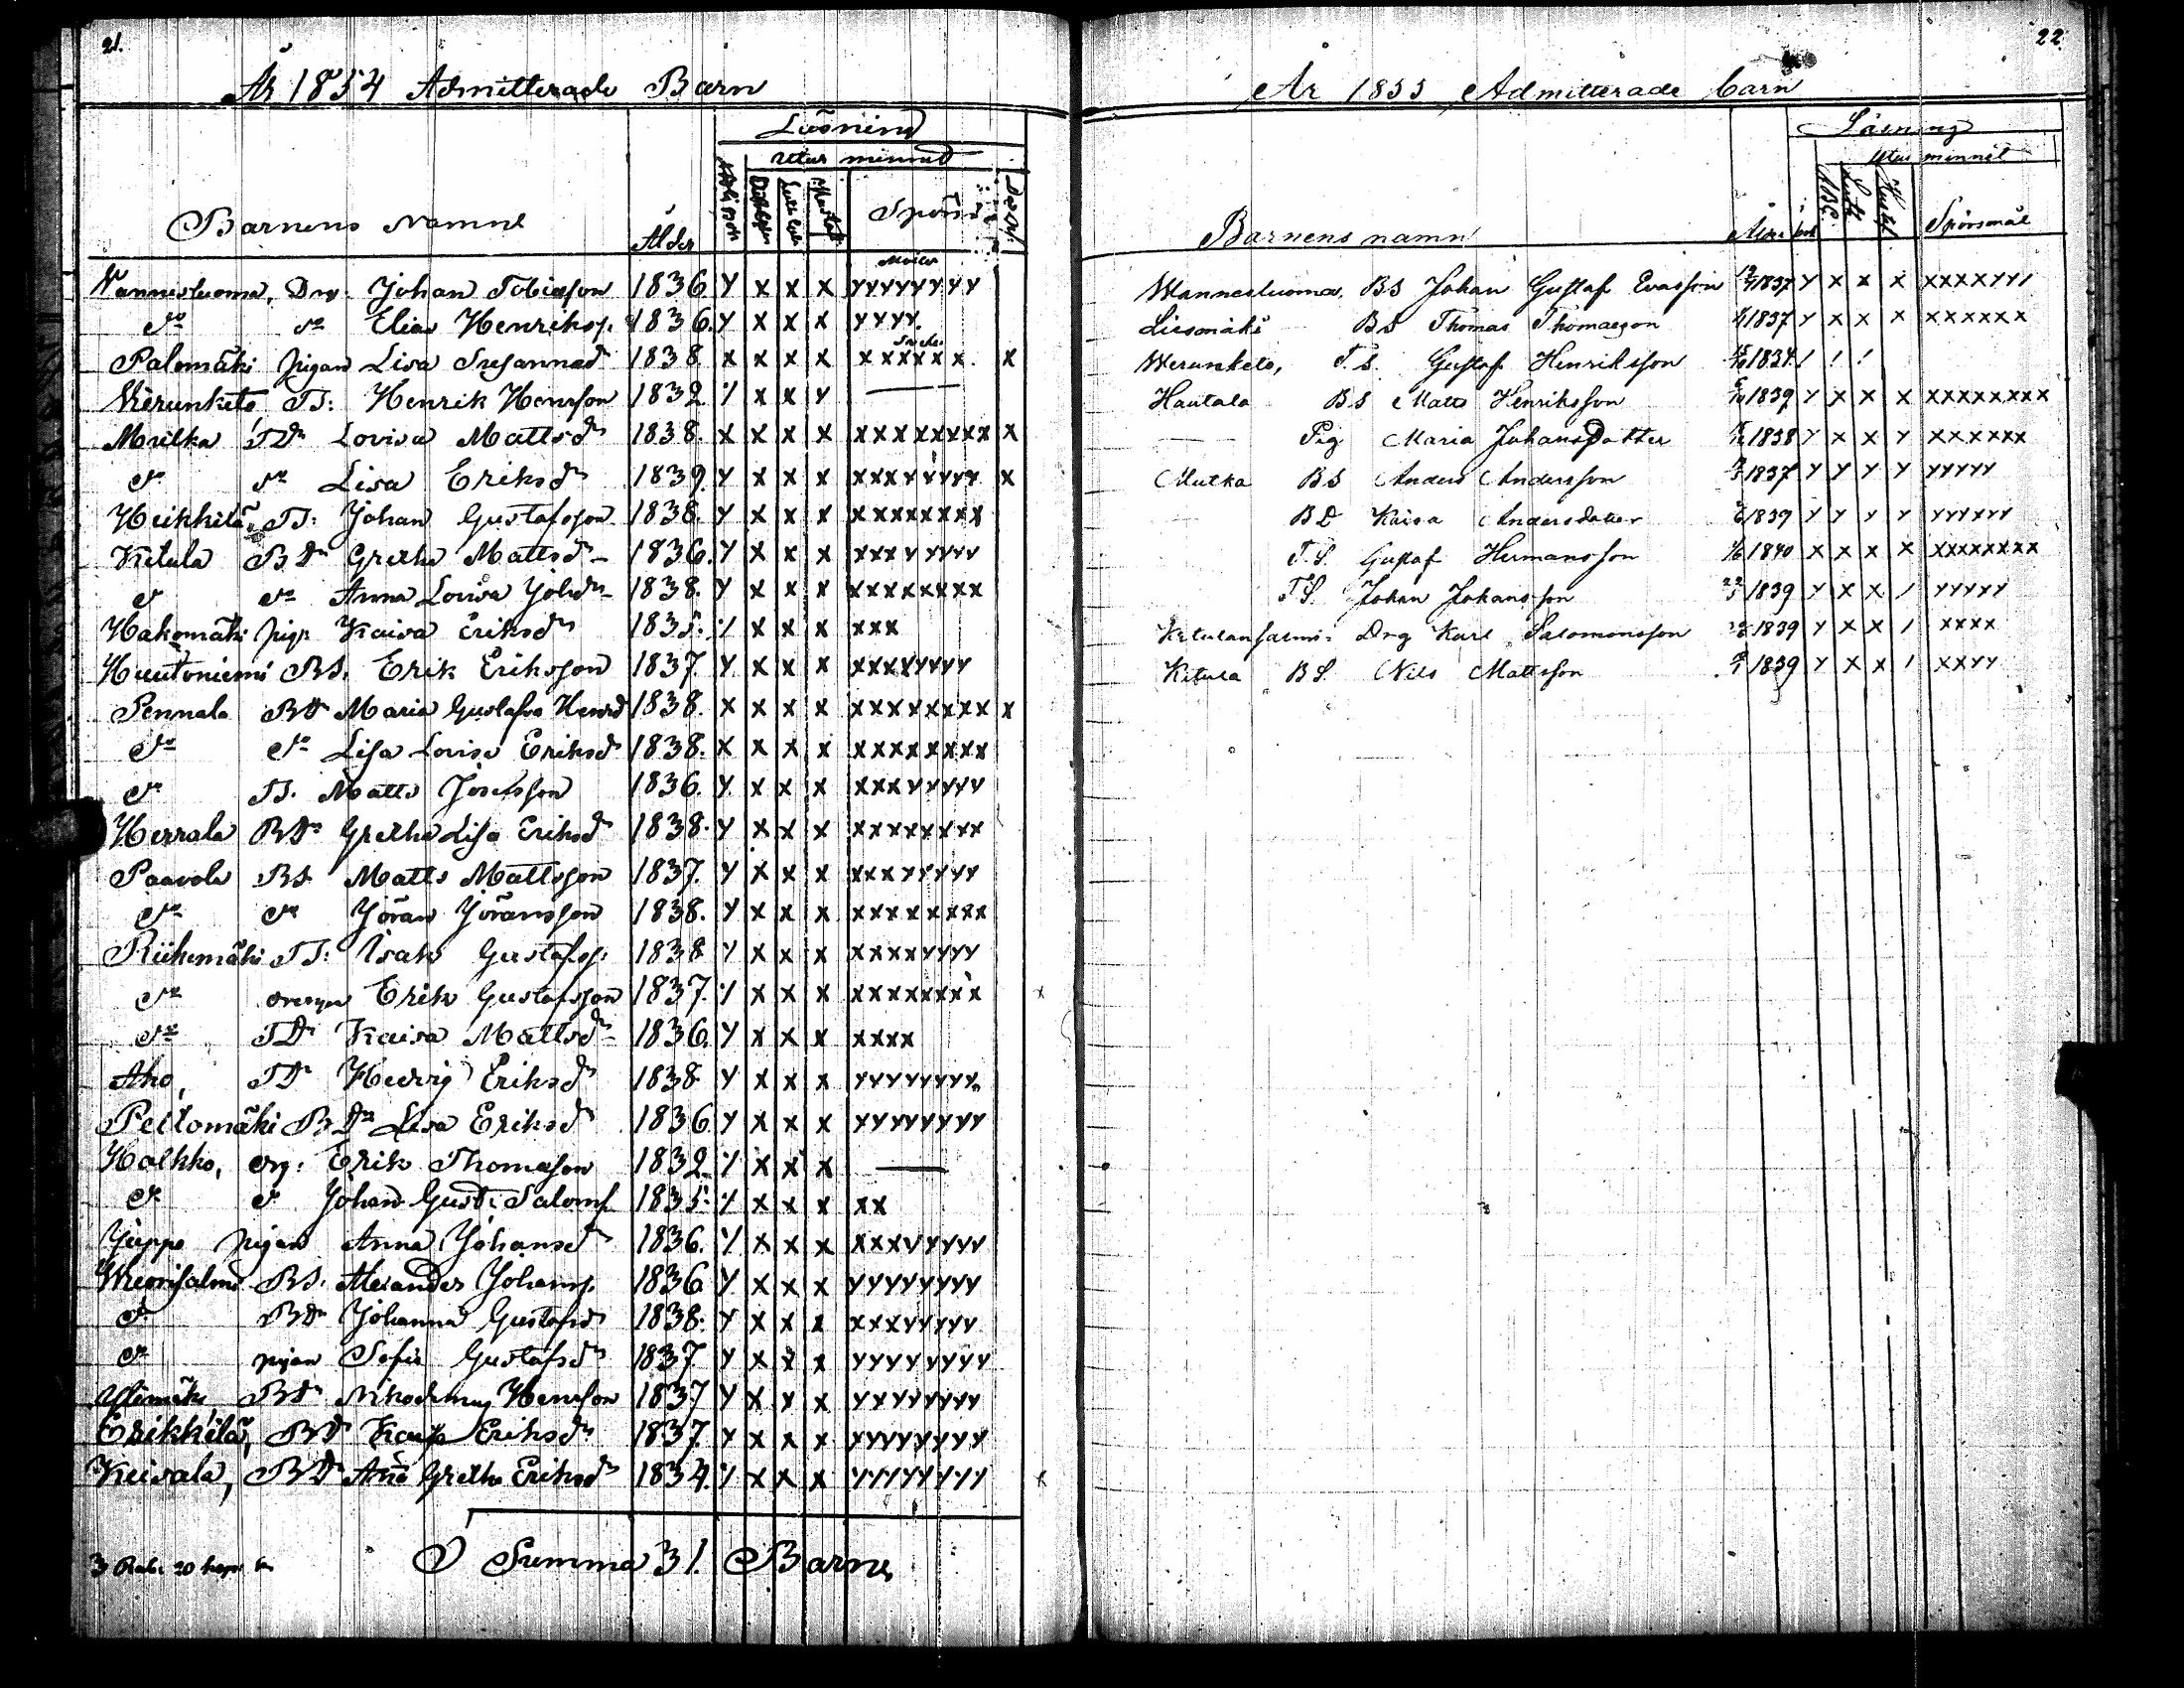 21.
År 1854 Admitterade Barn
Läsning
Utur minnet
Barnens Namn
Ålder
Spörs
Wannesluoma, Drg. Johan Tobiasson 1836. Y X X X YYYYYYYY
do do Elias Henrikss. 1836. Y X X X YYYY.
Palomäki pigan Lisa Susannad 1838 X X X X XXXXXX. X
Werunketo TS: Henrik Henrsson 1832 X X Y —
Mutka TDr Lovisa Mattsdr 1838. X X X X XXXXXXXX X
do do Lisa Eriksdr 1839 Y X X X XXXYYYYY X
Heikkilä, TS: Johan Gustafsson 1838. Y X X X XXXXXXXX
Kitula BDr Gretha Mattsdr 1836. Y X X X XXXYYYYY
do do Anna Lovisa Johdr 1838. Y X X X XXXXXXXX
Hakomäki pig. Kaisa Eriksdr 1835. X X X XXX
Huutoniemi BS. Erik Eriksson 1837. Y X X X XXXXYYYY
Pennala BDr Maria Gustafva Henrd 1838. X X X X XXXXXXXX X
do do Lisa Lovisa Eriksdr 1838. X X X X XXXXXXXX
do TS. Matts Josefsson 1836. Y X X X XXXYYYYY
Herrala BDr Gretha Lisa Eriksdr 1838. Y X X X XXXXXXXX
Paavola BS Matts Mattsson 1837. Y X X X XXXYYYYY
do do Jöran Jöransson 1838. Y X X X XXXXXXXX
Riihimäki TS: Isak Gustafss. 1838 Y X X X XXXXYYYY
do Erik Gustafsson 1837. X X X XXXXXXXX x
do TDr Kaisa Mattsdr 1836. Y X X X XXXX
Aho, TDr Hedvig Eriksdr 1838 Y X X X YYYYYYYY
Peltomäki BDr Lisa Eriksdr 1836 Y X X X YYYYYYYY
Halkko, drg: Erik Thomasson 1832. X X X —
do do Johan Gust: Saloms. 1835. X X X XX
Juppo pigan Anna Johansdr 1836. X X X XXXVYYYY
Wuorisalmi BS. Alexander Johanss. 1836 Y X X X YYYYYYYY
do BDr Johanna Gustafsdr 1838. Y X X X XXXYYYYY
do pigan Sofia Gustafsdr 1837 Y X X X YYYYYYYY
Ylimäki, Nikodemus Henrsson 1837 Y X X X YYYYYYYY
Erikkilä, BDr Kaisa Eriksdr 1837. Y X X X YYYYYYYY
Keisala, BDr Anna Gretha Eriksdr 1834. X X X YYYYYYYY x
S Summa 31. Barn
22.
År 1855 Admitterade barn
Läsning
Utur minnet
Barnens namn
Spörsmål
Wannesluoma. BS Johan Gustaf Evasson 1837 Y X X X XXXXYYI
Liisamäki BS Thomas Thomasson 1837 Y X X X XXXXXX
Werunketo, T.S. Gustaf Henriksson 1834 / ! !
Hautala BS Matts Henriksson 1839 Y X X X XXXXXXXX
— Pig Maria Johansdotter 1838 Y X X Y XXXXXX
Mutka BS Anders Andersson 1837 Y Y Y Y YYYYY
BD Kaisa Andersdotter 1839 Y Y Y Y YYYYYY
T.S. Gustaf Hermansson 1840 X X X X XXXXXXXX
TS. Johan Johansson 1839 Y X X / YYYYY
Kitulansalmi. Drg Karl Salomonsson 1839 Y X X / XXXX
Kitula BS. Nils Mattsson 1839 Y X X / XXYY